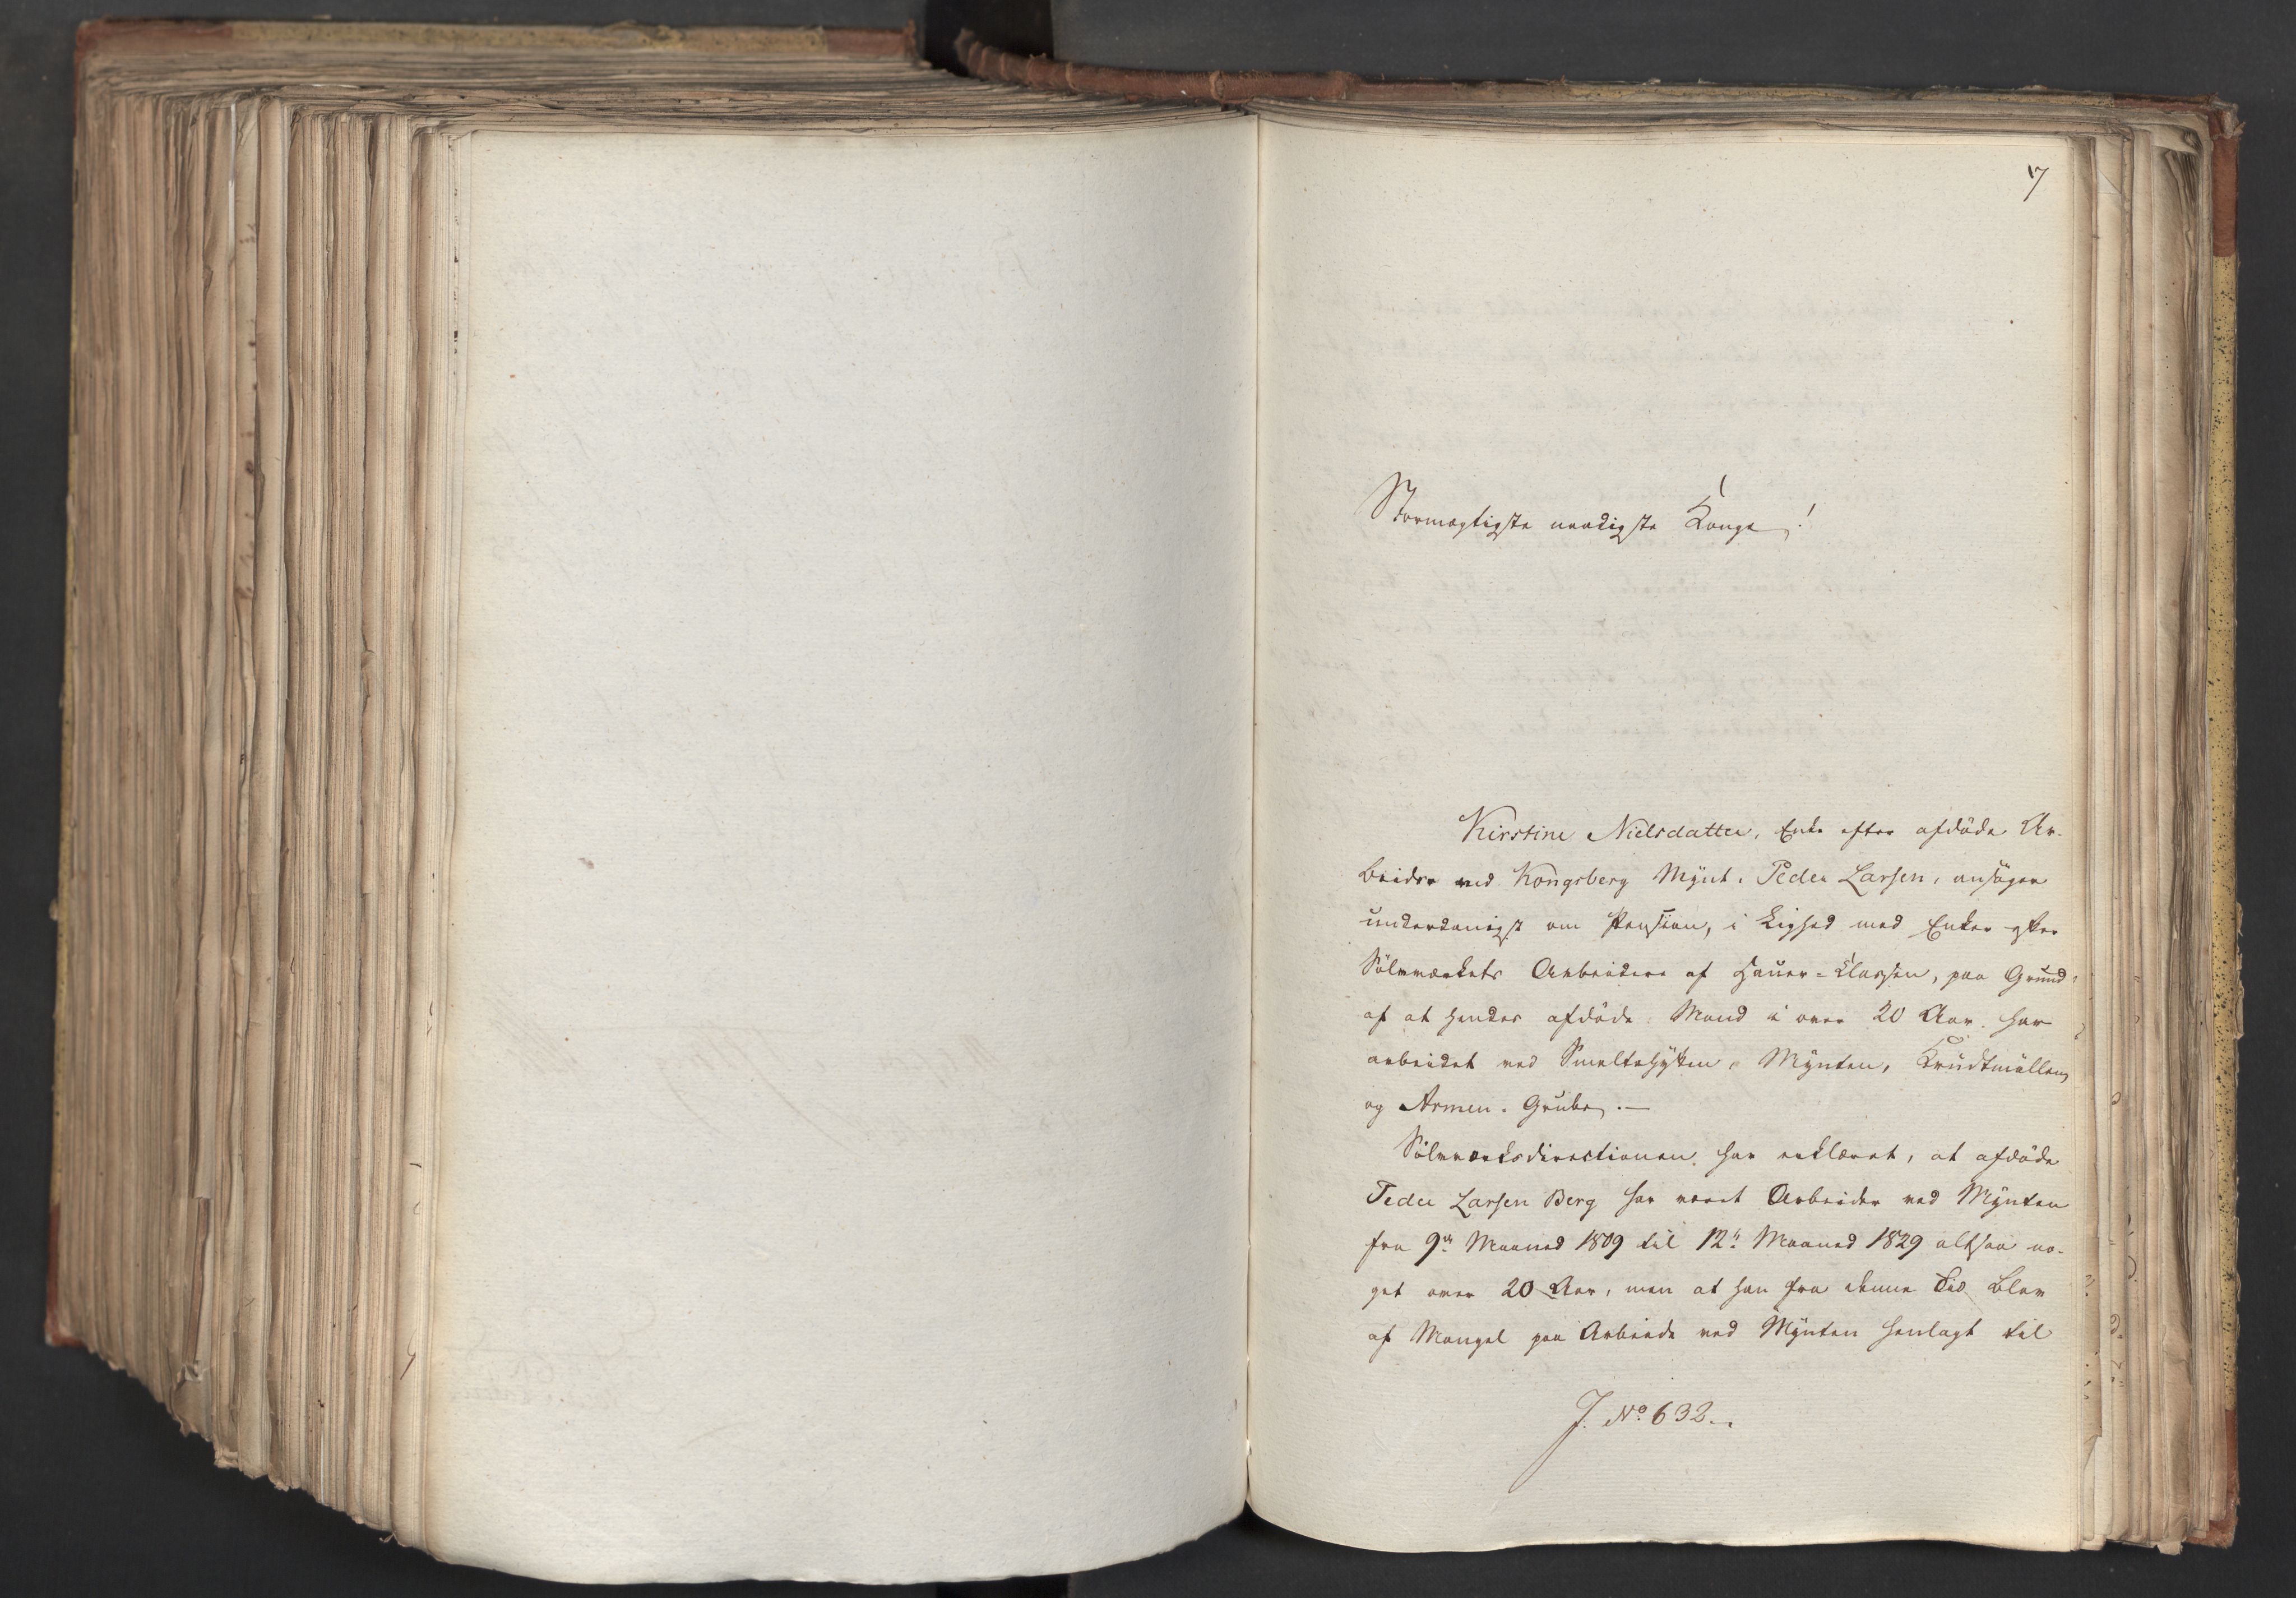 7
Stormægtigste naadigste Konge!
Kirstine Nielsdatter, Enke efter afdöde Ar-
beider ved Kongsberg Mynt, Peder Larsen, ansöger
underdanigst om Pension, i Lighed med Enker efter
Sölvværkets Arbeidere af Hauer-Klassen, paa Grund
af at hendes afdöde Mand i over 20 Aar har
arbeidet ved Smeltehytten, Mynten, Krudtmöllen
og Armen-Grube.—
Sölvværksdirectionen har erklæret, at afdöde
Peder Larsen Berg har været Arbeider ved Mynten
fra 9de Maaned 1809 til 12te Maaned 1829 altsaa no-
get over 20 Aar, men at han fra denne Tid blev
af Mangel paa Arbeide ved Mynten henlagt til
J. No 632.